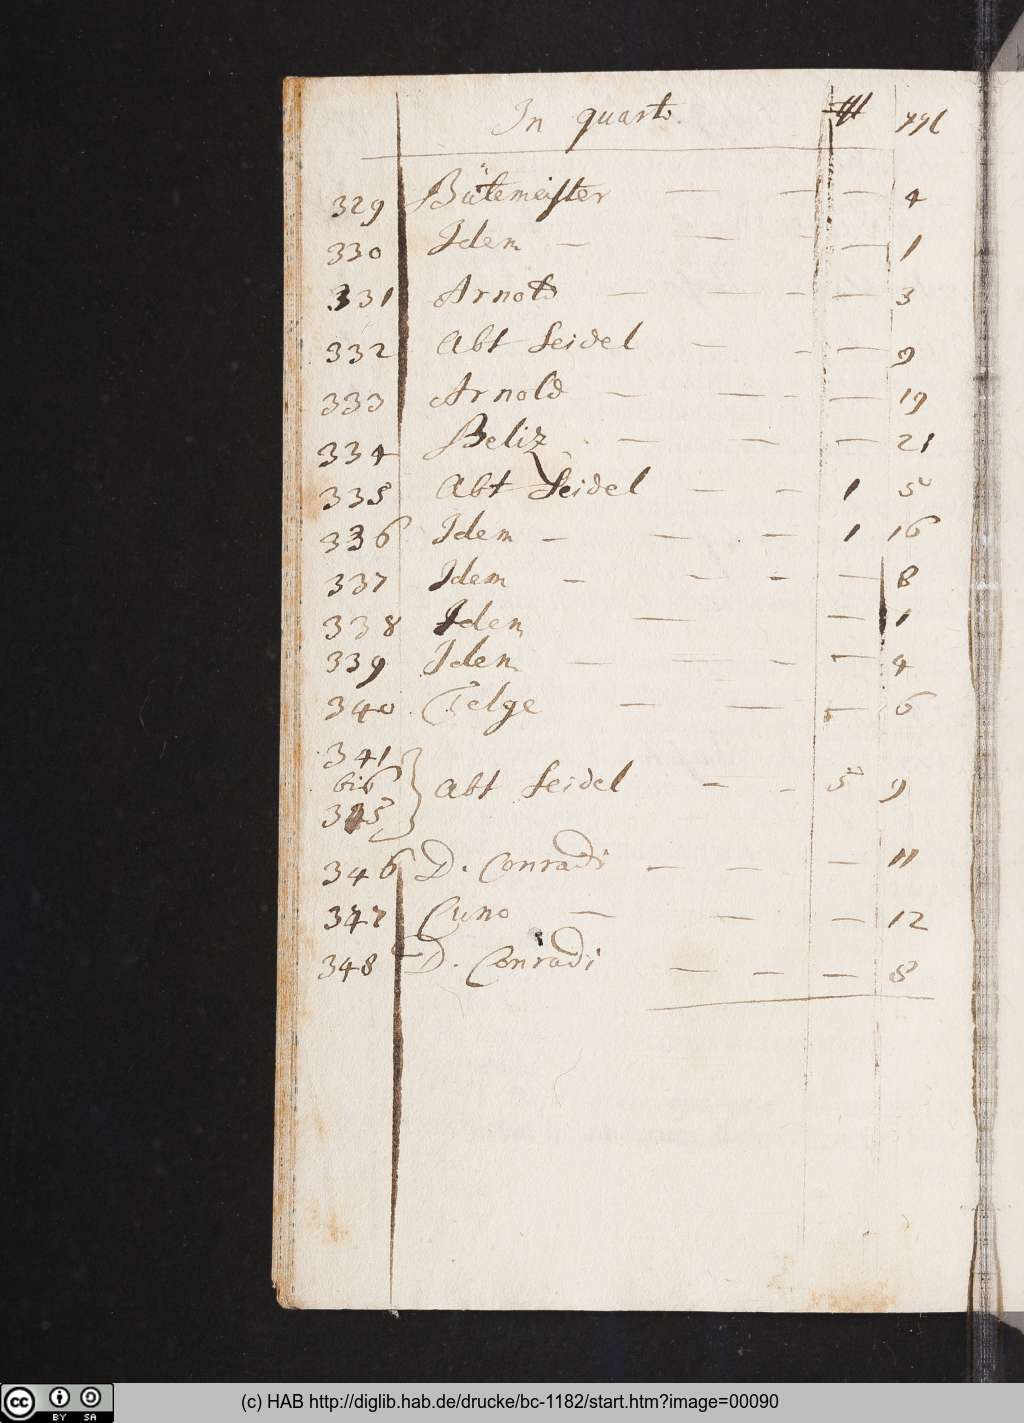 In quarto.
329 Bütemeister — — — 4
330 Idem — — — — 1
331 Arnold — — — — 3
332 Abt Seidel — — — 9
333 Arnold — — — — 19
334 Beliz — — — 21
335 Abt Seidel — — 1 5
336 Idem — — — 1 16
337 Idem — — — — 8
338 Idem — — 1
339 Idem — — — — 4
340 Telge — — — 6
341
bis
345 } Abt Seidel — — 5 9
346 D. Conradi — — — 11
347 Cuno — — — 12
348 D. Conradi — — — 8
(c) HAB http://diglib.hab.de/drucke/bc-1182/start.htm?image=00090
cc BY SA